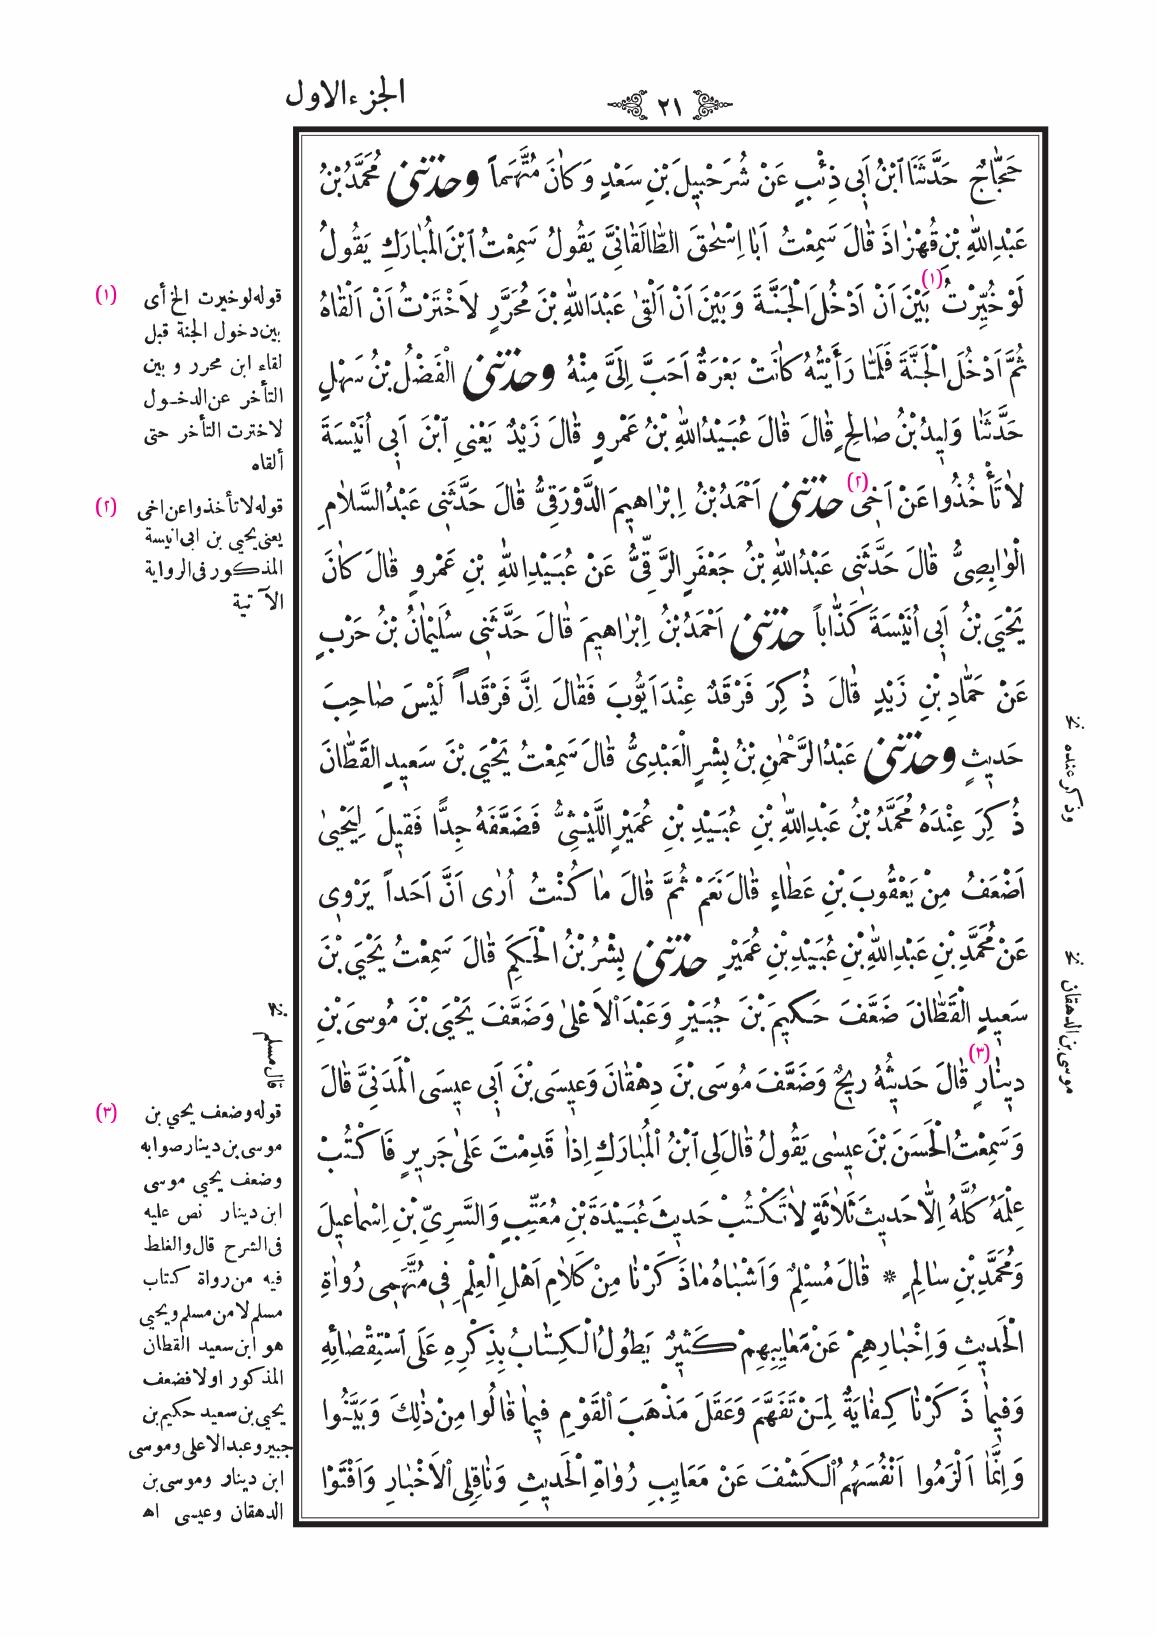 ٢١
الجزء الاول
حَجَّاجٌ حَدَّثَنَا ابْنُ اَبِى ذِئْبٍ عَنْ شُرَحْبِيلَ بْنِ سَعْدٍ وَكَانَ مُتَّهَماً وحدثنى مُحَمَّدُ بْنُ
عَبْدِاللهِ بْنِ قُهْزَاذَ قَالَ سَمِعْتُ اَبَا اِسْحٰقَ الطَّالَقَانِىَّ يَقُولُ سَمِعْتُ ابْنَ الْمُبَارَكِ يَقُولُ
لَوْ خُيِّرْتُ (١) بَيْنَ اَنْ اَدْخُلَ الْجَنَّةَ وَبَيْنَ اَنْ اَلْقٰى عَبْدَاللهِ بْنَ مُحَرَّرٍ لاَخْتَرْتُ اَنْ اَلْقَاهُ
ثُمَّ اَدْخُلَ الْجَنَّةَ فَلَمَّا رَأَيْتُهُ كَانَتْ بَعْرَةٌ اَحَبَّ اِلَىَّ مِنْهُ وحدثنى الْفَضْلُ بْنُ سَهْلٍ
حَدَّثَنَا وَلِيدُ بْنُ صَالِحٍ قَالَ قَالَ عُبَيْدُاللهِ بْنُ عَمْرٍو قَالَ زَيْدٌ يَعْنِى ابْنَ اَبِى اُنَيْسَةَ
لاَ تَأْخُذُوا عَنْ اَخِى (٢) حدثنى اَحْمَدُ بْنُ اِبْرَاهِيمَ الدَّوْرَقِىُّ قَالَ حَدَّثَنِى عَبْدُ السَّلاَمِ
الْوَابِصِىُّ قَالَ حَدَّثَنِى عَبْدُاللهِ بْنُ جَعْفَرٍ الرَّقِّىُّ عَنْ عُبَيْدِاللهِ بْنِ عَمْرٍو قَالَ كَانَ
يَحْيَى بْنُ اَبِى اُنَيْسَةَ كَذَّاباً حدثنى اَحْمَدُ بْنُ اِبْرَاهِيمَ قَالَ حَدَّثَنِى سُلَيْمَانُ بْنُ حَرْبٍ
عَنْ حَمَّادِ بْنِ زَيْدٍ قَالَ ذُكِرَ فَرْقَدٌ عِنْدَ اَيُّوبَ فَقَالَ اِنَّ فَرْقَداً لَيْسَ صَاحِبَ
حَدِيثٍ وحدثنى عَبْدُ الرَّحْمٰنِ بْنُ بِشْرٍ الْعَبْدِىُّ قَالَ سَمِعْتُ يَحْيَى بْنَ سَعِيدٍ الْقَطَّانَ
ذُكِرَ عِنْدَهُ مُحَمَّدُ بْنُ عَبْدِاللهِ بْنِ عُبَيْدِ بْنِ عُمَيْرٍ اللَّيْثِىُّ فَضَعَّفَهُ جِدًّا فَقِيلَ لِيَحْيٰى
اَضْعَفُ مِنْ يَعْقُوبَ بْنِ عَطَاءٍ قَالَ نَعَمْ ثُمَّ قَالَ مَا كُنْتُ اُرٰى اَنَّ اَحَداً يَرْوِى
عَنْ مُحَمَّدِ بْنِ عَبْدِاللهِ بْنِ عُبَيْدِ بْنِ عُمَيْرٍ حدثنى بِشْرُ بْنُ الْحَكَمِ قَالَ سَمِعْتُ يَحْيَى بْنَ
سَعِيدٍ الْقَطَّانَ ضَعَّفَ حَكِيمَ بْنَ جُبَيْرٍ وَعَبْدَ الاَعْلٰى وَضَعَّفَ يَحْيَى بْنَ مُوسَى بْنِ
دِينَارٍ (٣) قَالَ حَدِيثُهُ رِيحٌ وَضَعَّفَ مُوسَى بْنَ دِهْقَانَ وَعِيسَى بْنَ اَبِى عِيسَى الْمَدَنِىَّ قَالَ
وَسَمِعْتُ الْحَسَنَ بْنَ عِيسٰى يَقُولُ قَالَ لِى ابْنُ الْمُبَارَكِ اِذَا قَدِمْتَ عَلٰى جَرِيرٍ فَاكْتُبْ
عِلْمَهُ كُلَّهُ اِلَّا حَدِيثَ ثَلاَثَةٍ لاَ تَكْتُبْ حَدِيثَ عُبَيْدَةَ بْنِ مُعَتِّبٍ وَالسَّرِىِّ بْنِ اِسْمَاعِيلَ
وَمُحَمَّدِ بْنِ سَالِمٍ * قَالَ مُسْلِمٌ وَاَشْبَاهُ مَا ذَكَرْنَا مِنْ كَلاَمِ اَهْلِ الْعِلْمِ فِى مُتَّهَمِى رُوَاةِ
الْحَدِيثِ وَاِخْبَارِهِمْ عَنْ مَعَايِبِهِمْ كَثِيرٌ يَطُولُ الْكِتَابُ بِذِكْرِهِ عَلَى اسْتِقْصَائِهِ
وَفِيمَا ذَكَرْنَا كِفَايَةٌ لِمَنْ تَفَهَّمَ وَعَقَلَ مَذْهَبَ الْقَوْمِ فِيمَا قَالُوا مِنْ ذٰلِكَ وَبَيَّنُوا
وَاِنَّمَا اَلْزَمُوا اَنْفُسَهُمُ الْكَشْفَ عَنْ مَعَايِبِ رُوَاةِ الْحَدِيثِ وَنَاقِلِى الاَخْبَارِ وَاَفْتَوْا
(١) قوله لو خيرت الخ أى
بين دخول الجنة قبل
لقاء ابن محرر و بين
التأخر عن الدخول
لاخترت التأخر حتى
ألقاه
(٢) قوله لا تأخذوا عن اخى
يعنى يحيى بن ابى انيسة
المذكور فى الرواية
الآتية
قال مسلم نخ
(٣) قوله وضعف يحيي بن
موسى بن دينار صوابه
وضعف يحيى موسى
ابن دينار نص عليه
فى الشرح قال والغلط
فيه من رواة كتاب
مسلم لا من مسلم ويحيى
هو ابن سعيد القطان
المذكور اولا فضعف
يحيى بن سعيد حكيم بن
جبير وعبد الاعلى وموسى
ابن دينار وموسى بن
الدهقان وعيسى اه
وذكر عنده نخ
موسى بن الدهقان نخ